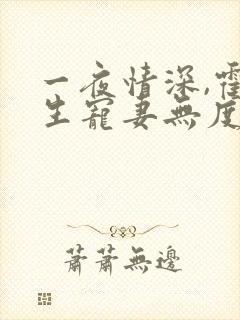 一夜情深,霍
生寵妻無度
蕭蕭無邊